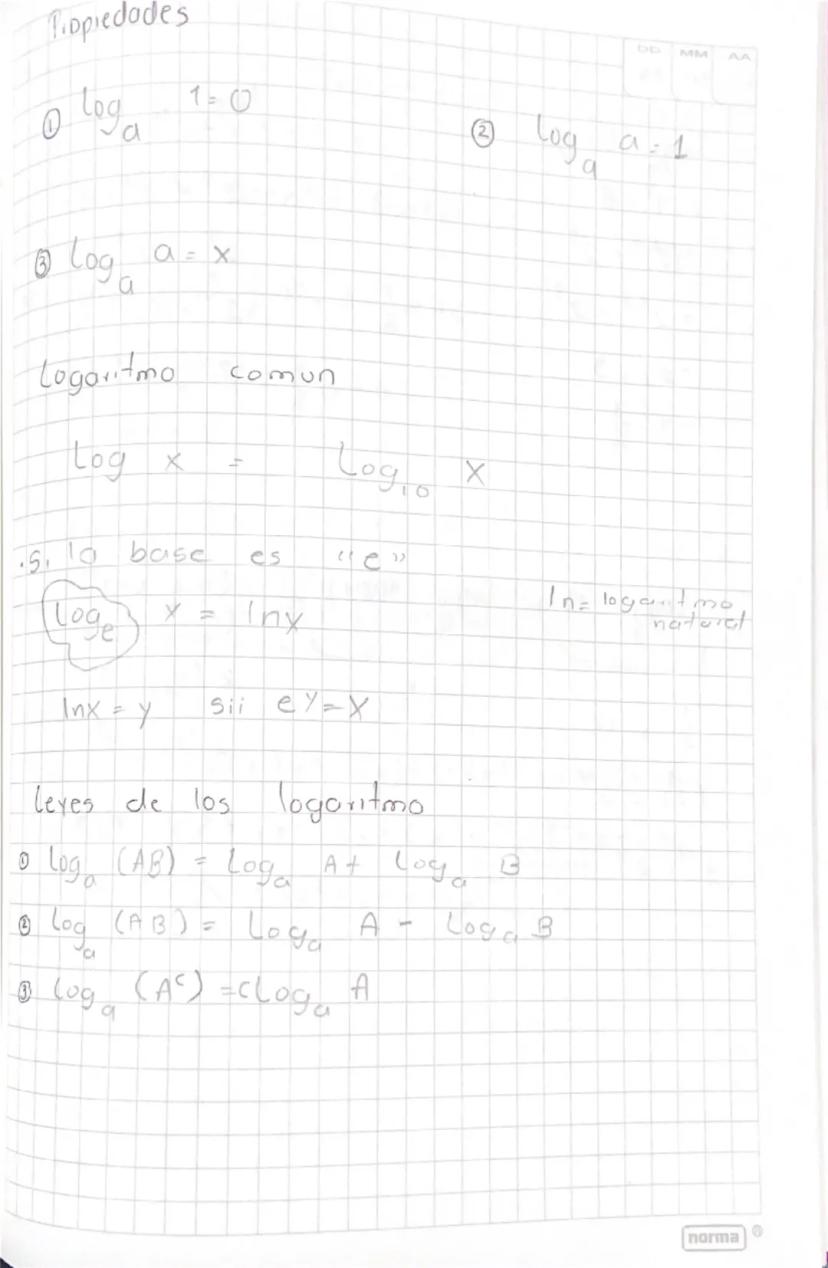 Propiedades
DD MM AA
① log_a 1 = 0
② log_a a = 1
③ log_a a = x
Logaritmo comun
Log x = Log_10 x
.Si la base es "e"
log_e x = lnx
ln = logaritmo
natural
lnx = y sii e^y = x
leyes de los logaritmo
① log_a (AB) = Log_a A + Log_a B
② log_a (AB) = Log_a A - Log_a B
③ log_a (A^c) = cLog_a A
norma®